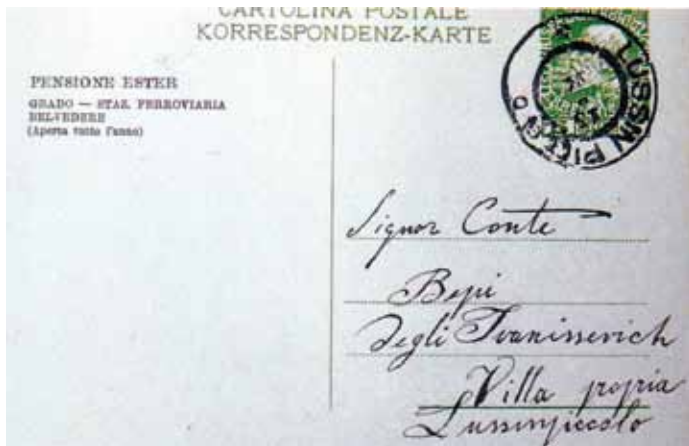 CARTOLINA POSTALE
KORRESPONDENZ-KARTE
PENSIONE ESTER
GRADO — STAZ. FERROVIARIA
BELVEDERE
(Aperta tutto l'anno)
LUSSIN PICCOLO
Signor Conte
Bepi
degli Ivanissevich
Villa propria
Lussinpiccolo